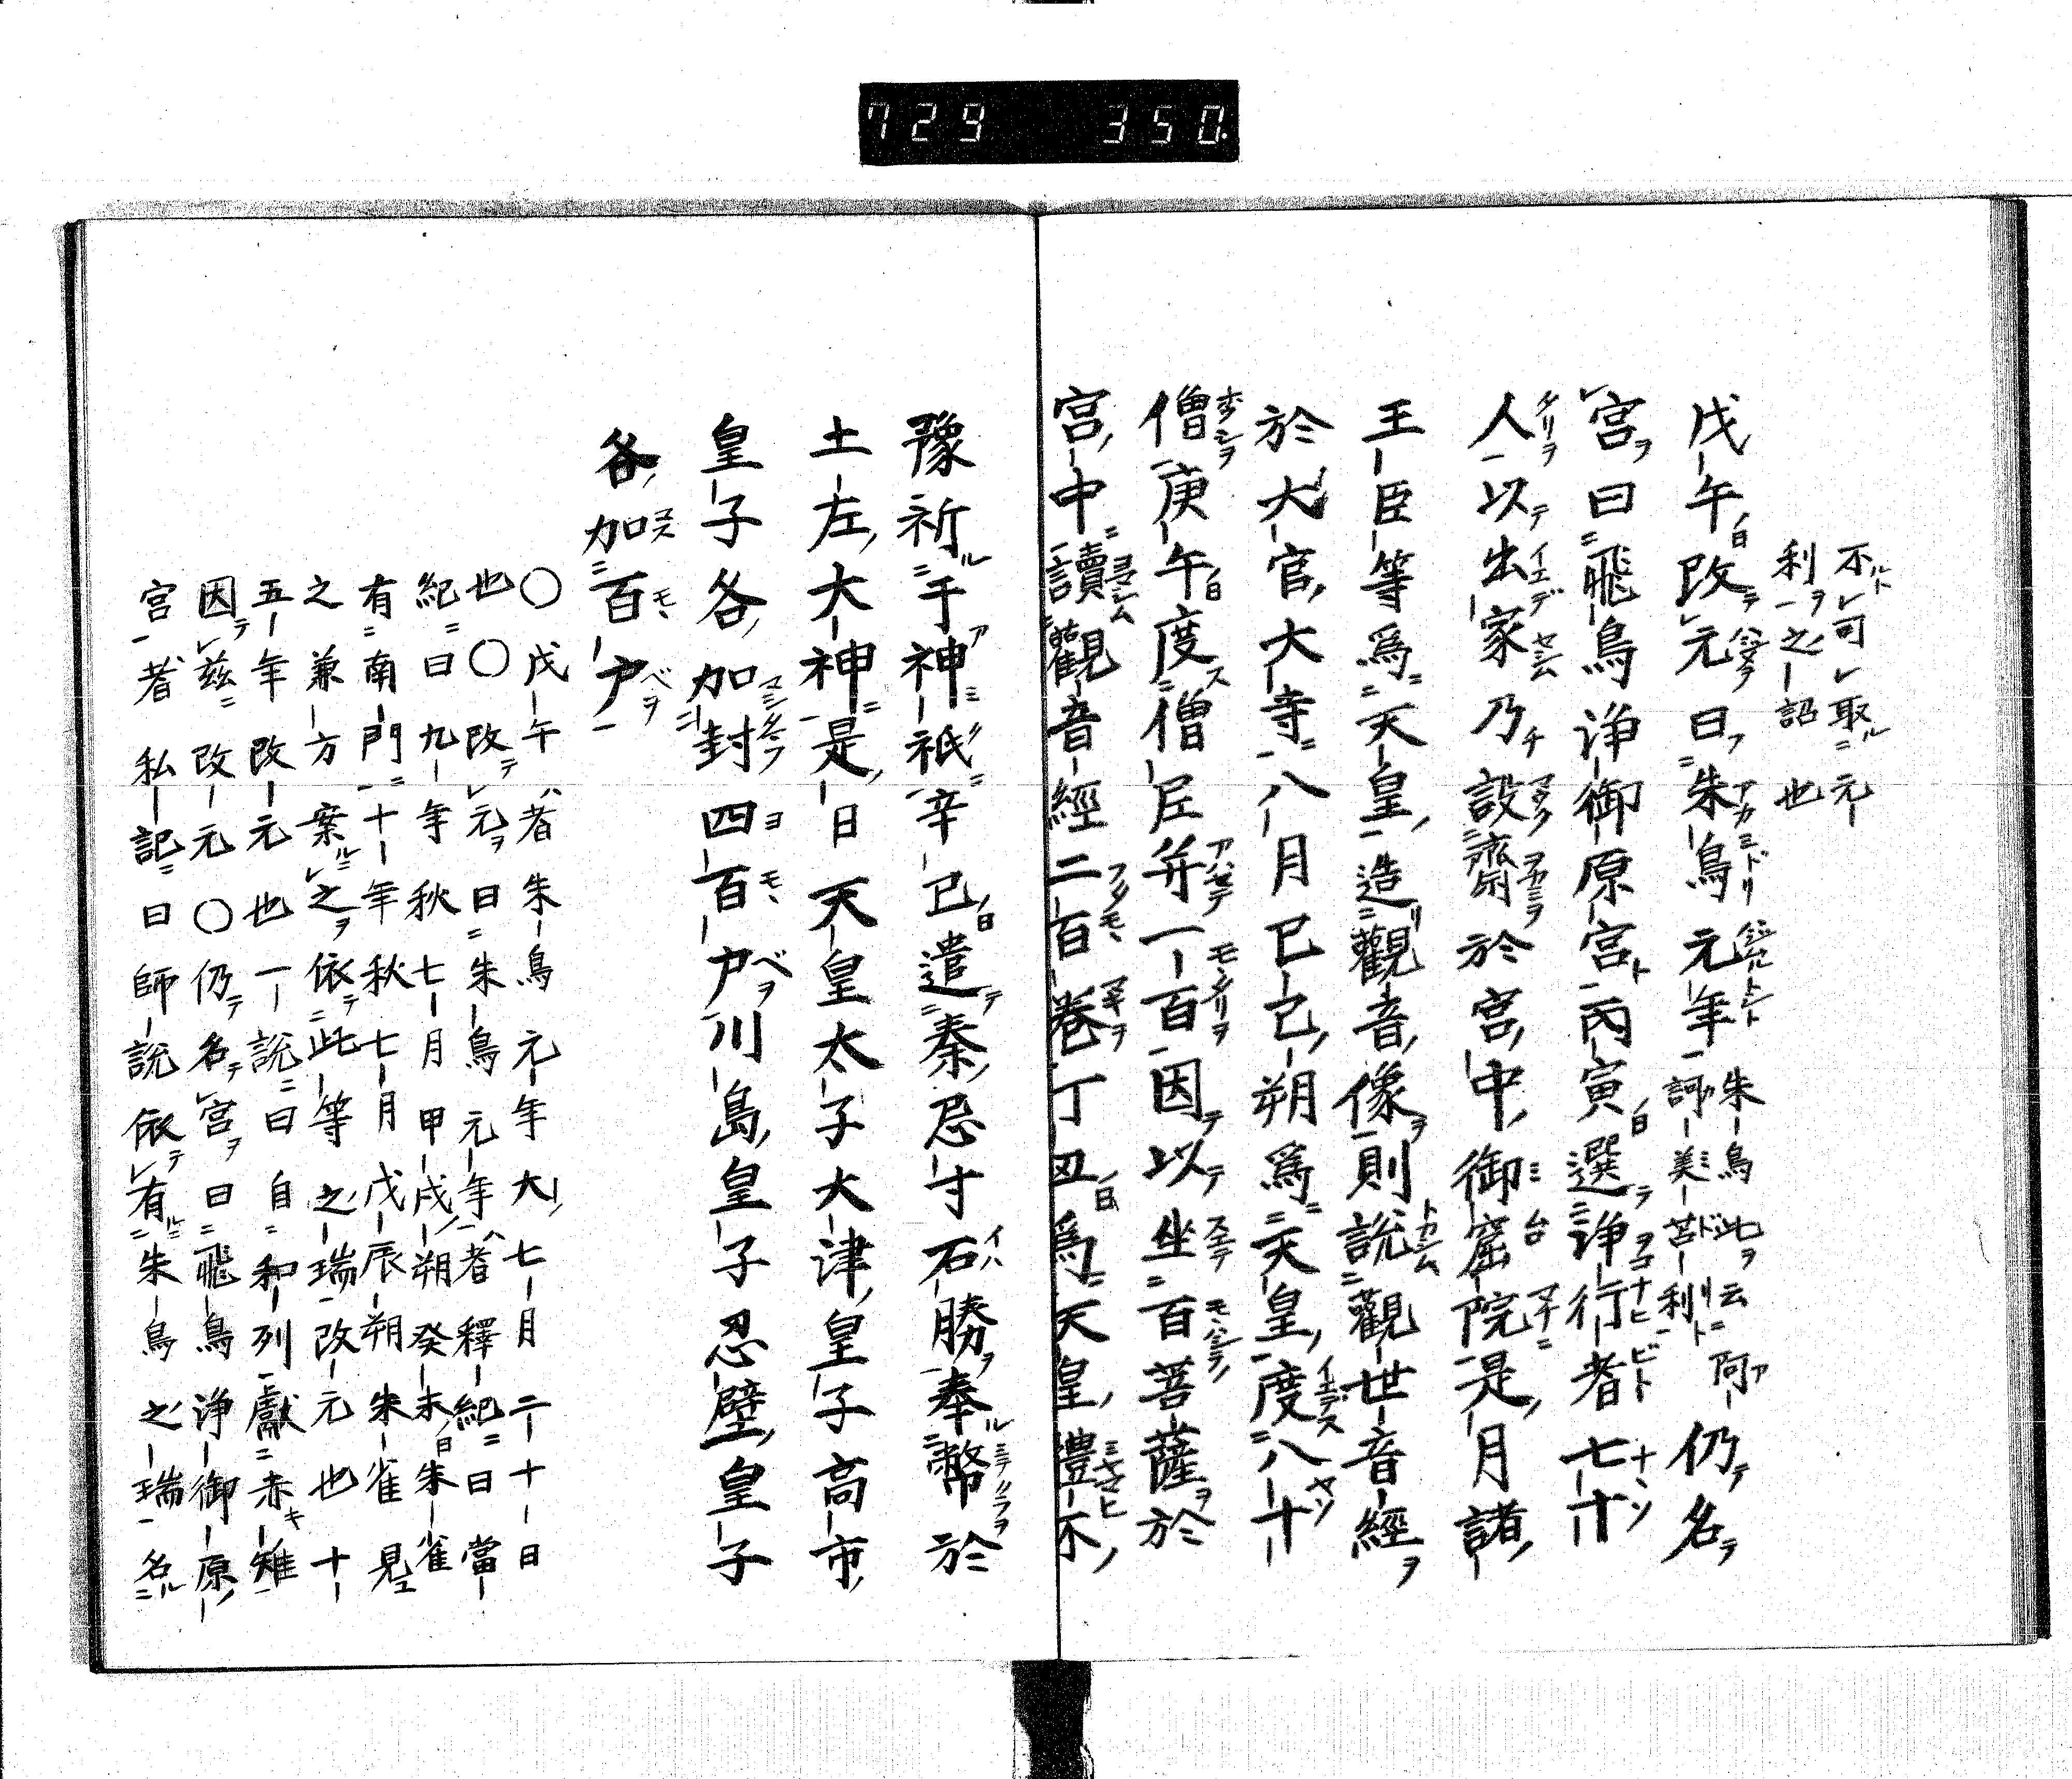 729 350.
不可取元
利之詔也
戊午改元曰朱鳥元年朱鳥此云阿訶美苔利仍名
宮曰飛鳥浄御原宮丙寅選浄行者七十
人以出家乃設齋於宮中御窟院是月諸
王臣等爲天皇造觀音像則説觀世音經
於大官大寺八月己巳朔爲天皇度八十
僧庚午度僧尼并一百因以坐百菩薩於
宮中讀觀音經二百巻丁丑爲天皇體不
豫祈于神祇辛巳遣秦忌寸石勝奉幣於
土左大神是日天皇太子大津皇子高市
皇子各加封四百戸川島皇子忍壁皇子
各加百戸
○戊午者朱鳥元年大七月二十日
也○改元曰朱鳥元年者釋紀曰當
紀曰九年秋七月甲戌朔癸未朱雀
有南門十年秋七月戊辰朔朱雀見
之兼方案之依此等之瑞改元也十
五年改元也一説曰自和列獻赤雉
因茲改元○仍名宮曰飛鳥浄御原
宮者私記曰師説依有朱鳥之瑞名